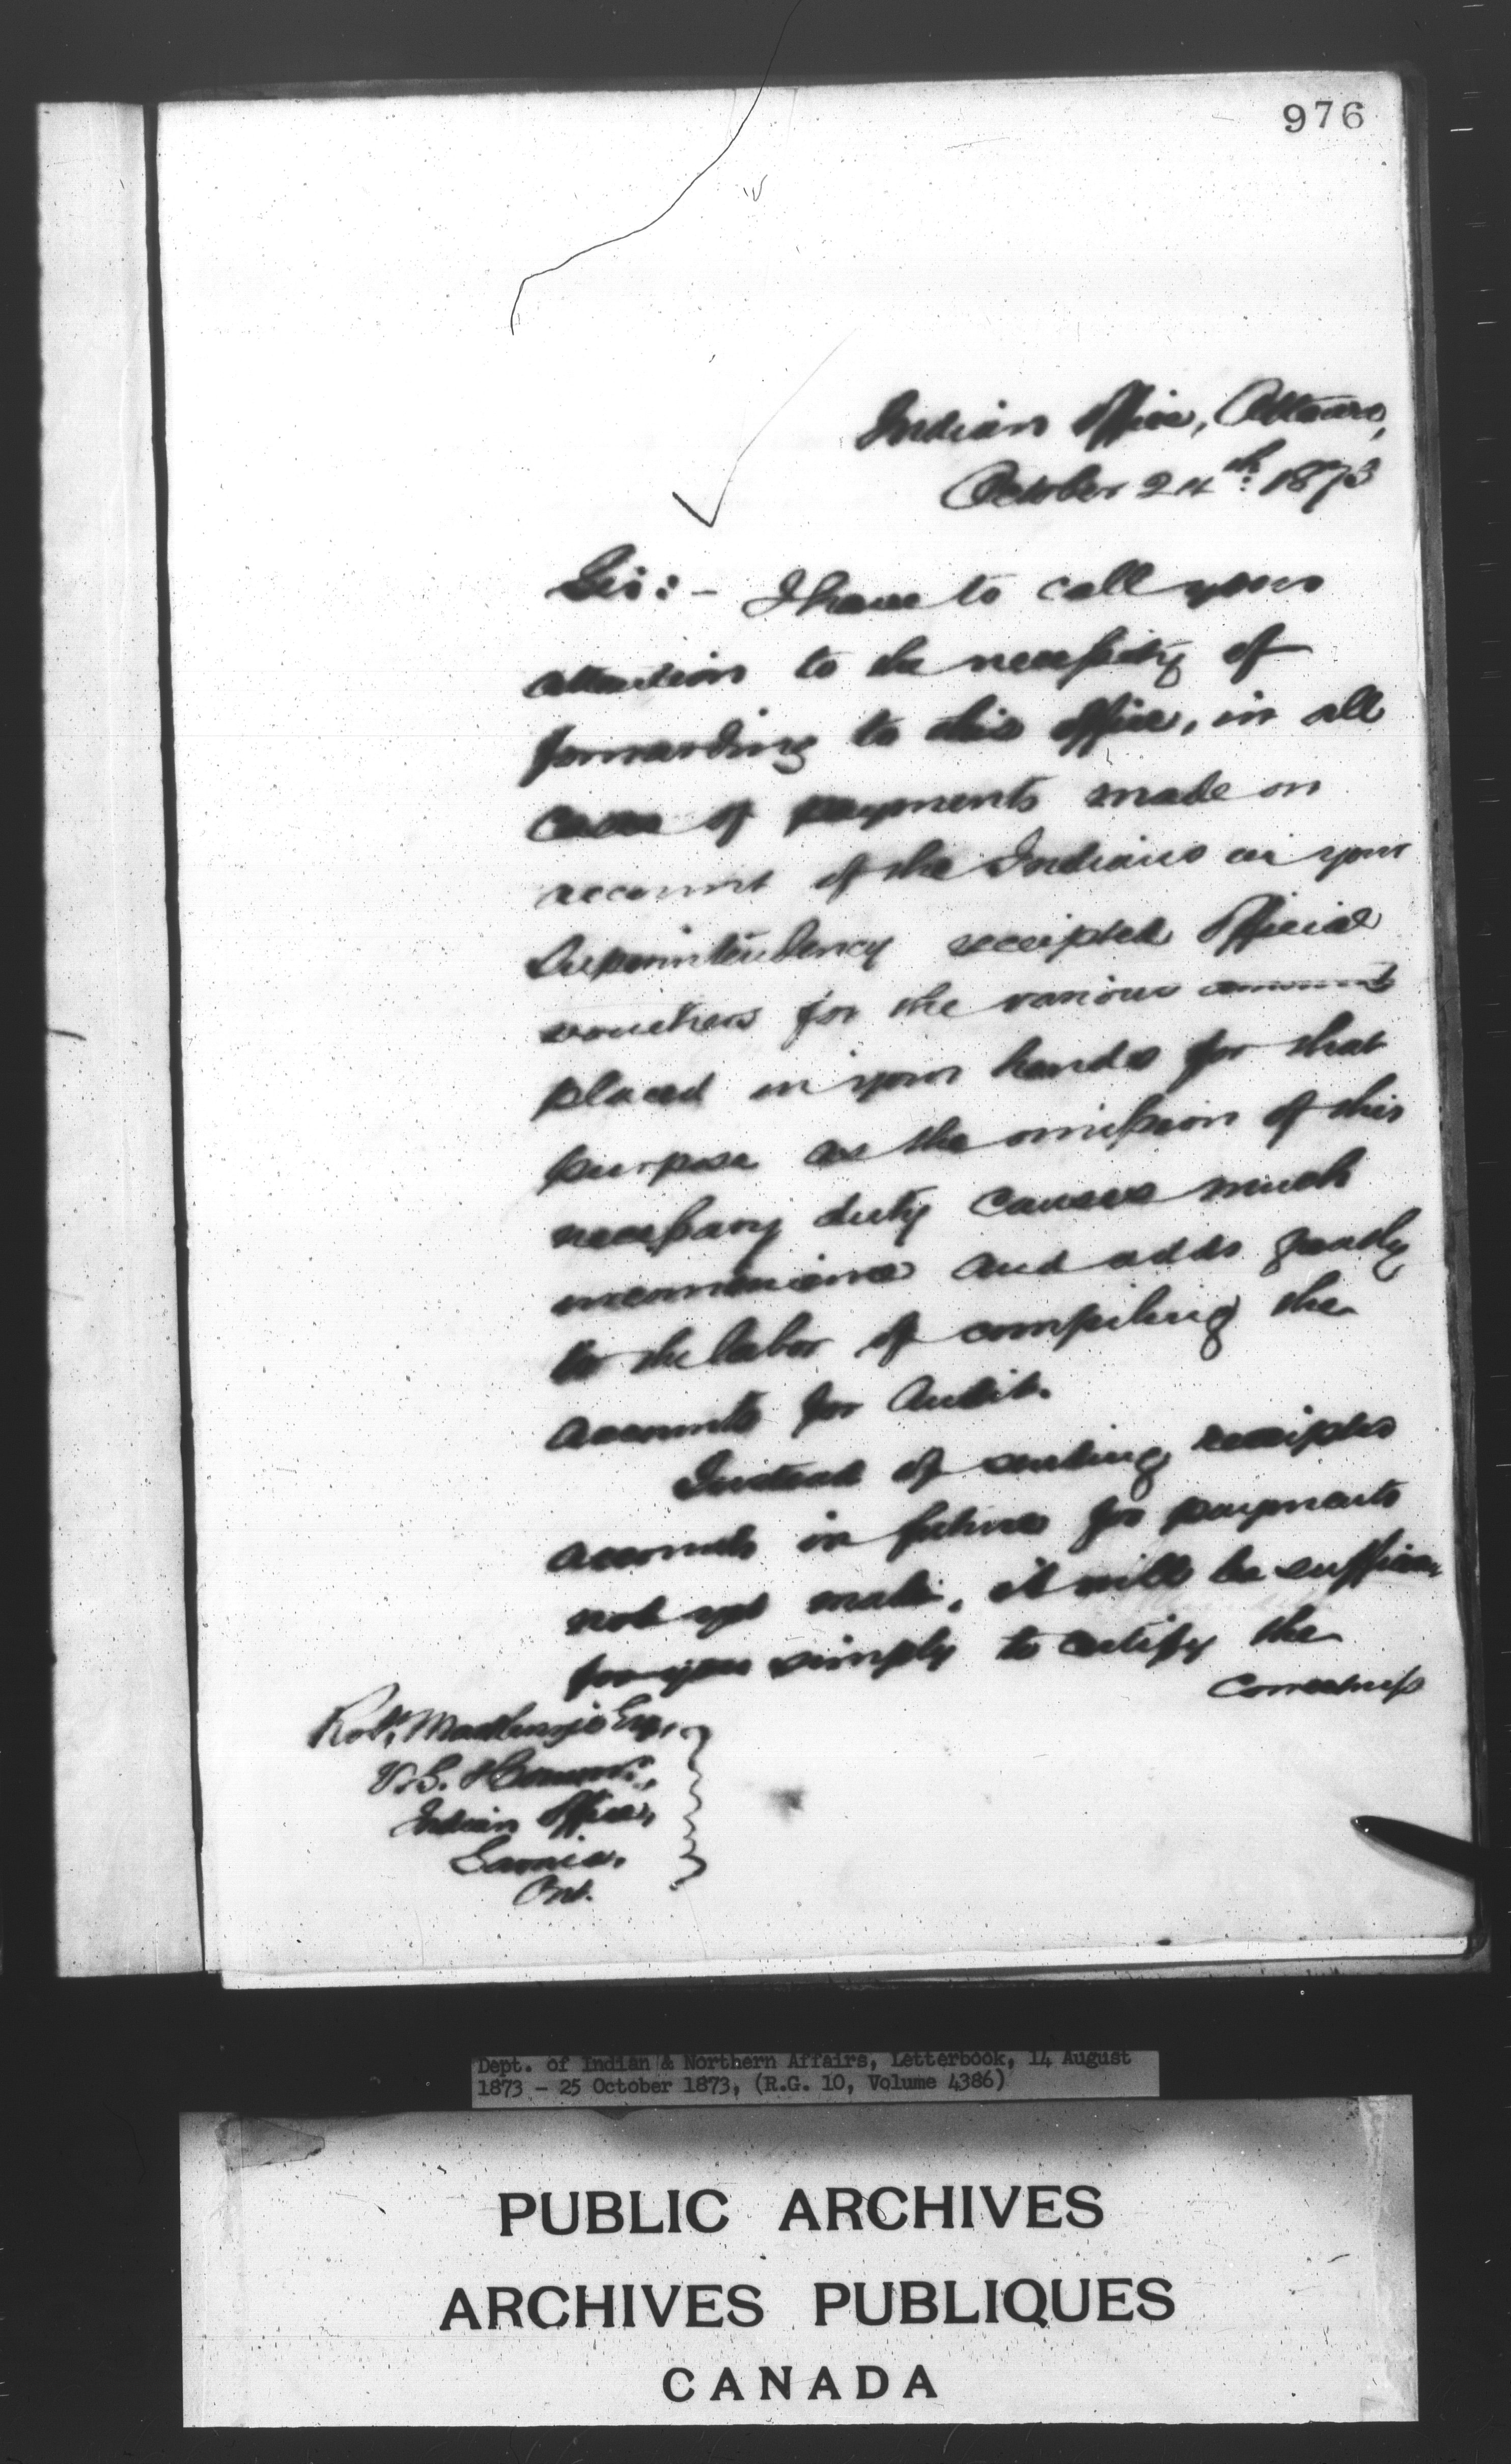 976
Indian Office, Ottawa,
October 24th: 1873
Sir:- I have to call your
attention to the necessity of
forwarding to this office, in all
cases of payments made on
account of the Indians in your
Superintendency receipted Official
vouchers for the various amounts
placed in your hands for that
purpose as the omission of this
necessary duty causes much
inconvenience and adds greatly
to the labor of compiling the
accounts for Audit.
Instead of sending receipted
accounts in future for payments
not yet made, it will be sufficient
for you simply to certify the
correctness
Robt. MacKenzie Esq.,
V.S. &
Indian Office,
Sarnia,
Ont.
Dept. of Indian & Northern Affairs, Letterbook, 14 August
1873 - 25 October 1873, (R.G. 10, Volume 4386)
PUBLIC ARCHIVES
ARCHIVES PUBLIQUES
CANADA